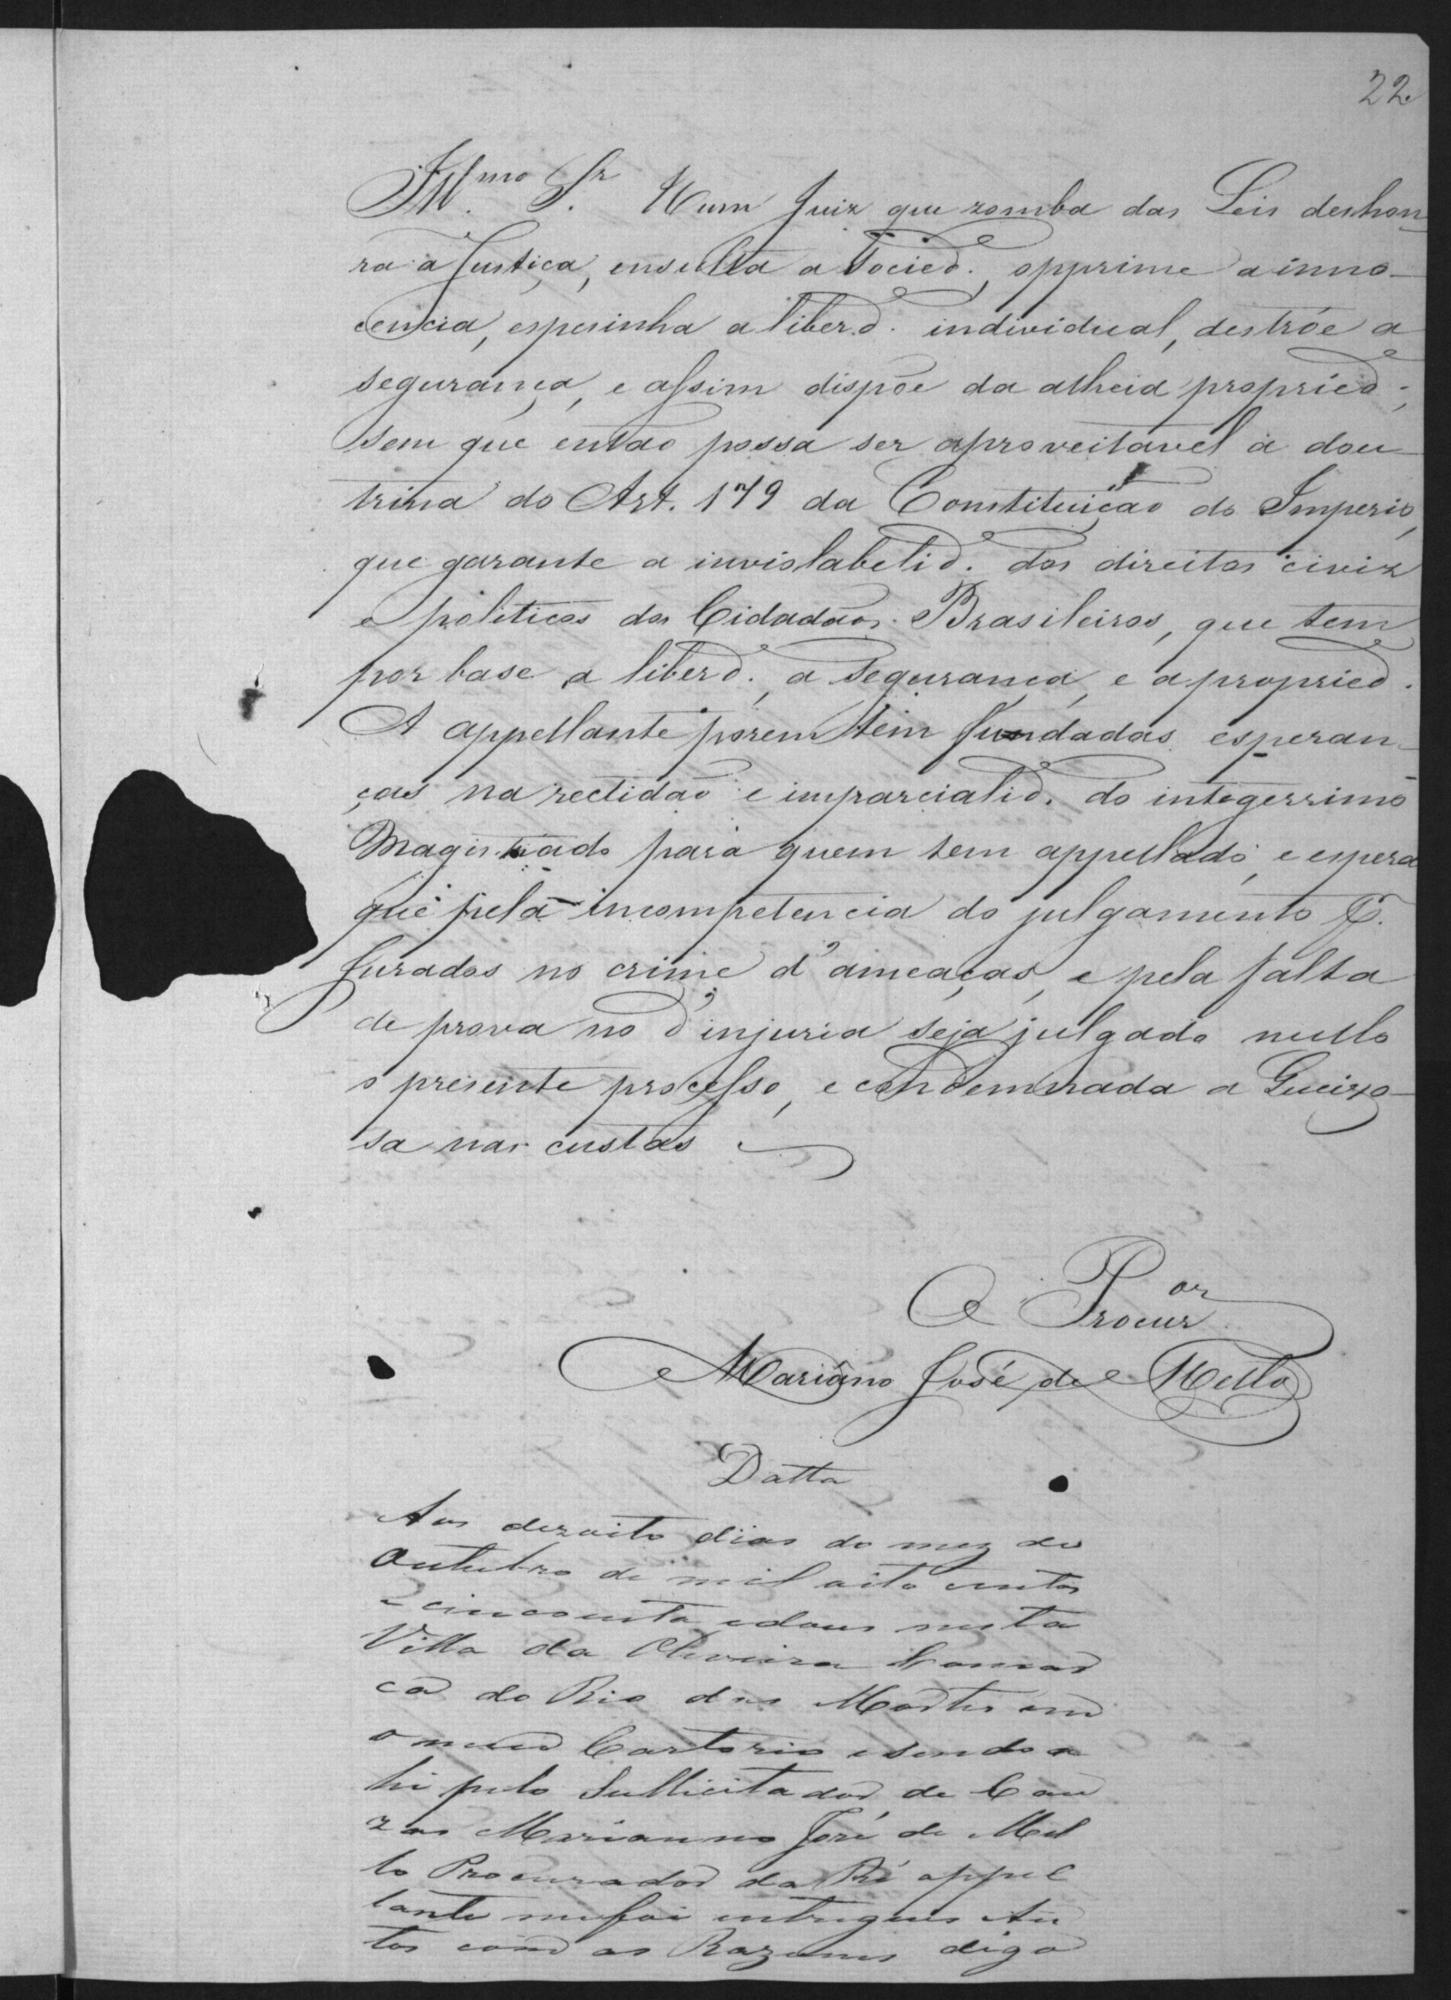 22
Illmo Sr. Hum Juiz que zomba das Leis deshon
ra a Justiça, ensulta a Socied., opprime a inno-
cencia, espesinha a liberd. individual, destróe a
segurança, e assim dispõe da alheia propried.,
sem que então possa ser aproveitavel a dou-
trina do Art. 179 da Constituição do Imperio,
que garante a inviolabelid. dos direitos civiz
e politicos dos Cidadãos Brasileiros, que tem
por base a liberd., a segurança, e a propried.
A appellante porem tem fundadas esperan-
ças na rectidão e imparcialid. do integerrimo
Magistrado para quem tem appellado, e espera
que pela incompetencia do julgamento p.
Jurados no crime d'ameaças, e pela falta
de prova no d'injuria seja julgado nullo
o presente processo, e condemnada a Queixo-
sa nas custas
O Procuror
Mariano José de Mello
Datta
Aos dezoito dias do mez de
Outubro de mil oito centos
e cincoenta e dous nesta
Villa da Oliveira Comar
ca do Rio das Mortes em
o meu Cartorio e sendo a
hi pelo Sullicitador de Cau
zas Marianno José de Mel
lo Procurador da Ré appel
lante me foi entregues Au
tos com as Razones digo